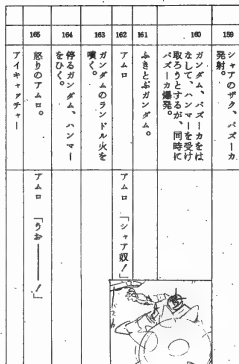 159
シャアのザク、バズーカ
発射。
160
ガンダム、バズーカをは
なして、ハンマーを受け
取ろうとするが、同時に
バズーカ爆発。
161
ふきとぶガンダム。
162
アムロ
アムロ 「シャア奴!」
163
ガンダムのランドル火を
噴く。
164
停るガンダム、ハンマー
をひく。
165
怒りのアムロ。
アムロ 「うお―――!」
アイキャッチャー